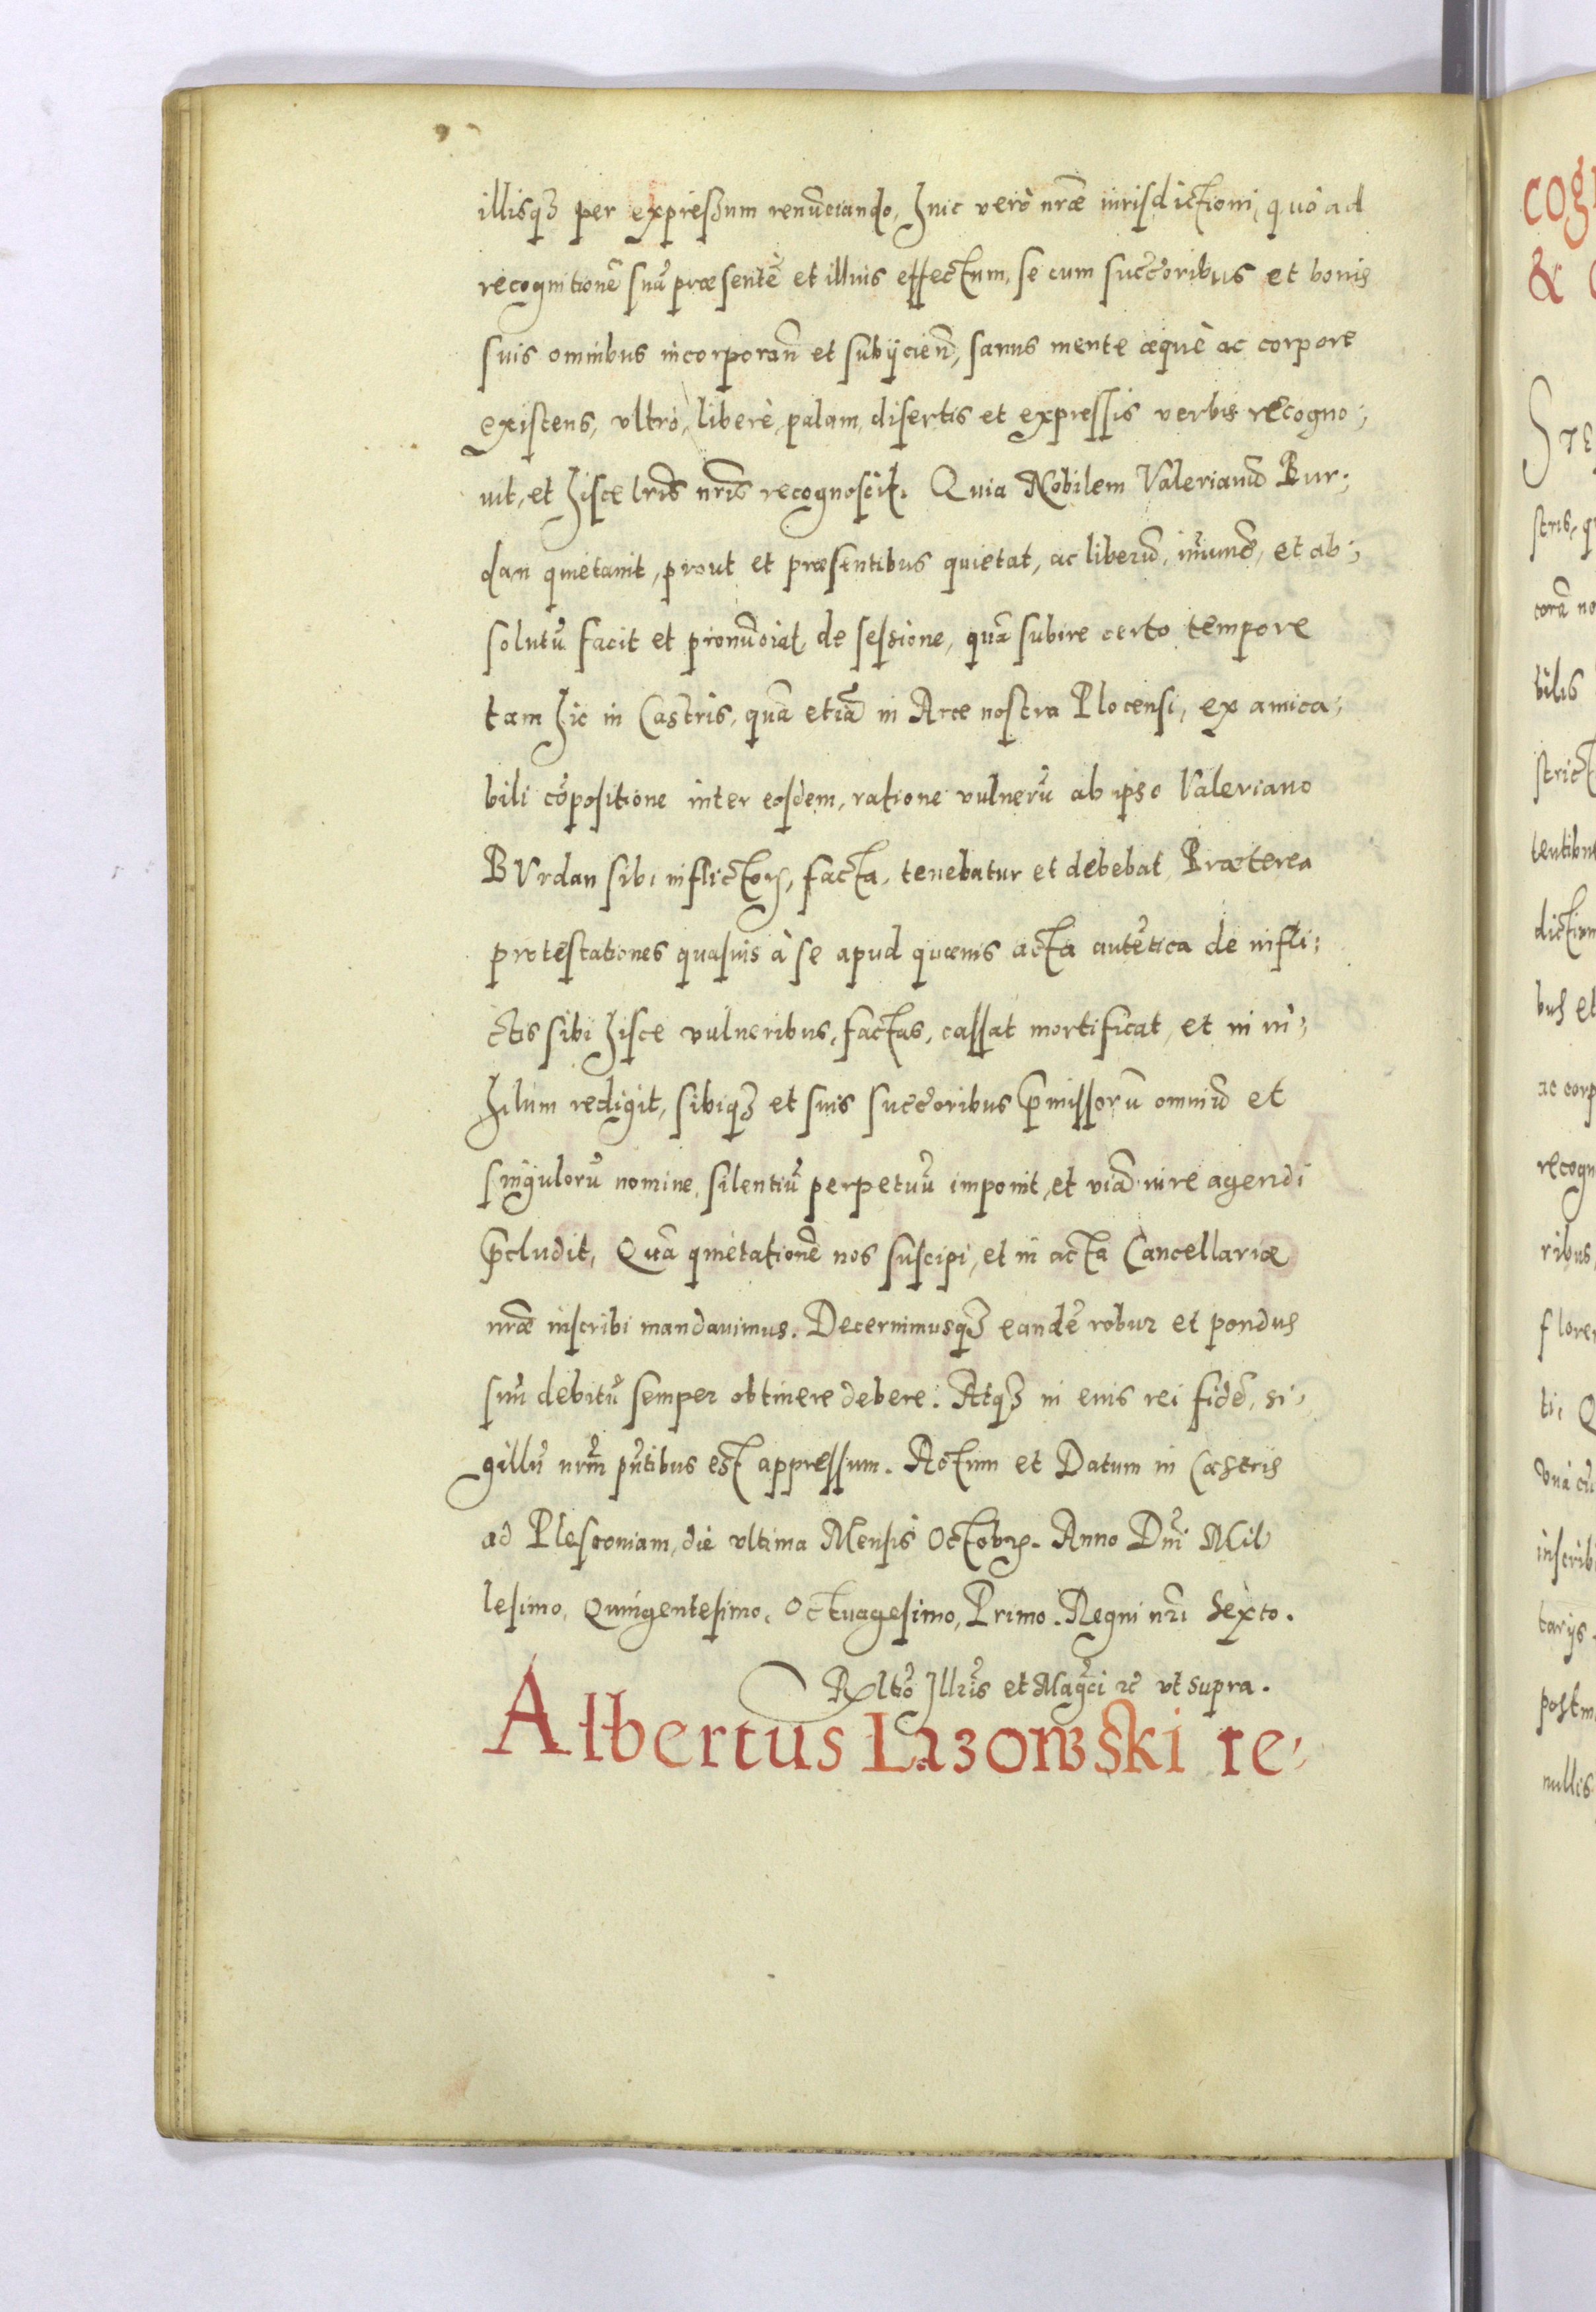 illisq₃ per expressum renũciando, huic verò nrãe iurisdictioni, quò ad
recognitionẽ suã præsentẽ et illius effectum, se cum succ̃oribus et bonis
suis omnibus incorporañ et subijcieñ, sanus mente æquè ac corpore
existens, vltrò, liberè, palam, disertis et expressis verbis recogno:
uit, et hisce lrĩs nrĩs recognoscit. Quia Nobilem Valerianũ Bur:
dan quietauit, prout et præsentibus quietat, ac liberũ, im̃unẽ, et ab:
solutũ facit et pronũciat de sessione, quã subire certo tempore
tam hic in Castris, quã etiã in Arce nostra Plocensi, ex amica:
bili cõpositione inter eosdem, ratione vulnerũ ab ipso Valeriano
BVrdan sibi inflictoꝝ, facta, tenebatur et debebat, Præterea
protestationes quasuis à se apud quæuis acta autẽtica de infli:
ctis sibi hisce vulneribus, factas, cassat mortificat, et in ni:
hilum redigit, sibiq₃ et suis succ̃oribus p̃missorũ omniũ et
singulorũ nomine, silentiũ perpetuũ imponit, et viã iure agendi
p̃cludit, Quã quietationẽ nos suscipi, et in acta Cancellariæ
nrãe inscribi mandauimus. Decernimusq₃ eandẽ robur et pondus
suũ debitũ semper obtinere debere. Atq₃ in euis rei fidẽ, si:
gillũ nrm̃ pñtibus est appressum. Actum et Datum in Castris
ad Plesconiam, die vltima Mensis Octobꝝ. Anno Dnĩ Mil
lesimo, Quingentesimo, Octuagesimo, Primo. Regni nr̃i Sexto.
Rltĩo Illrĩs et Magc̃i ꝛc̃ vt supra.
Albertus Lazowski re:
cog
& C
Ste
stris, q
corã no
bilis
strict
tentibu
diction
bus et
ac corp
recogn
ribus,
flore
ti, Q
Vnà cũ
inscrib
tarijs.
post m
nullis